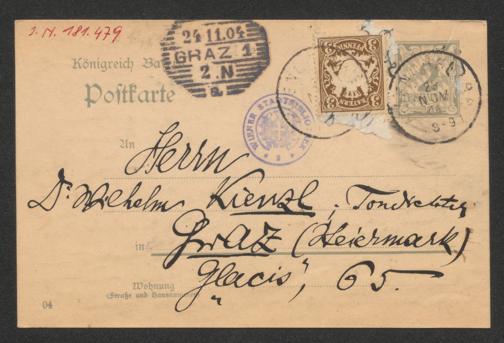 J. N. 181.479
24 11.04
GRAZ 1
2. N
a
Königreich Ba
Postkarte
WIENER STADTBIBLIOTHEK
NOV
8-9
An
Herrn
Dr. Wilhelm Kienzl, Tondichter
in Graz (Steiermark)
"Glacis", 65.
Wohnung
(Straße und Hausnummer)
04